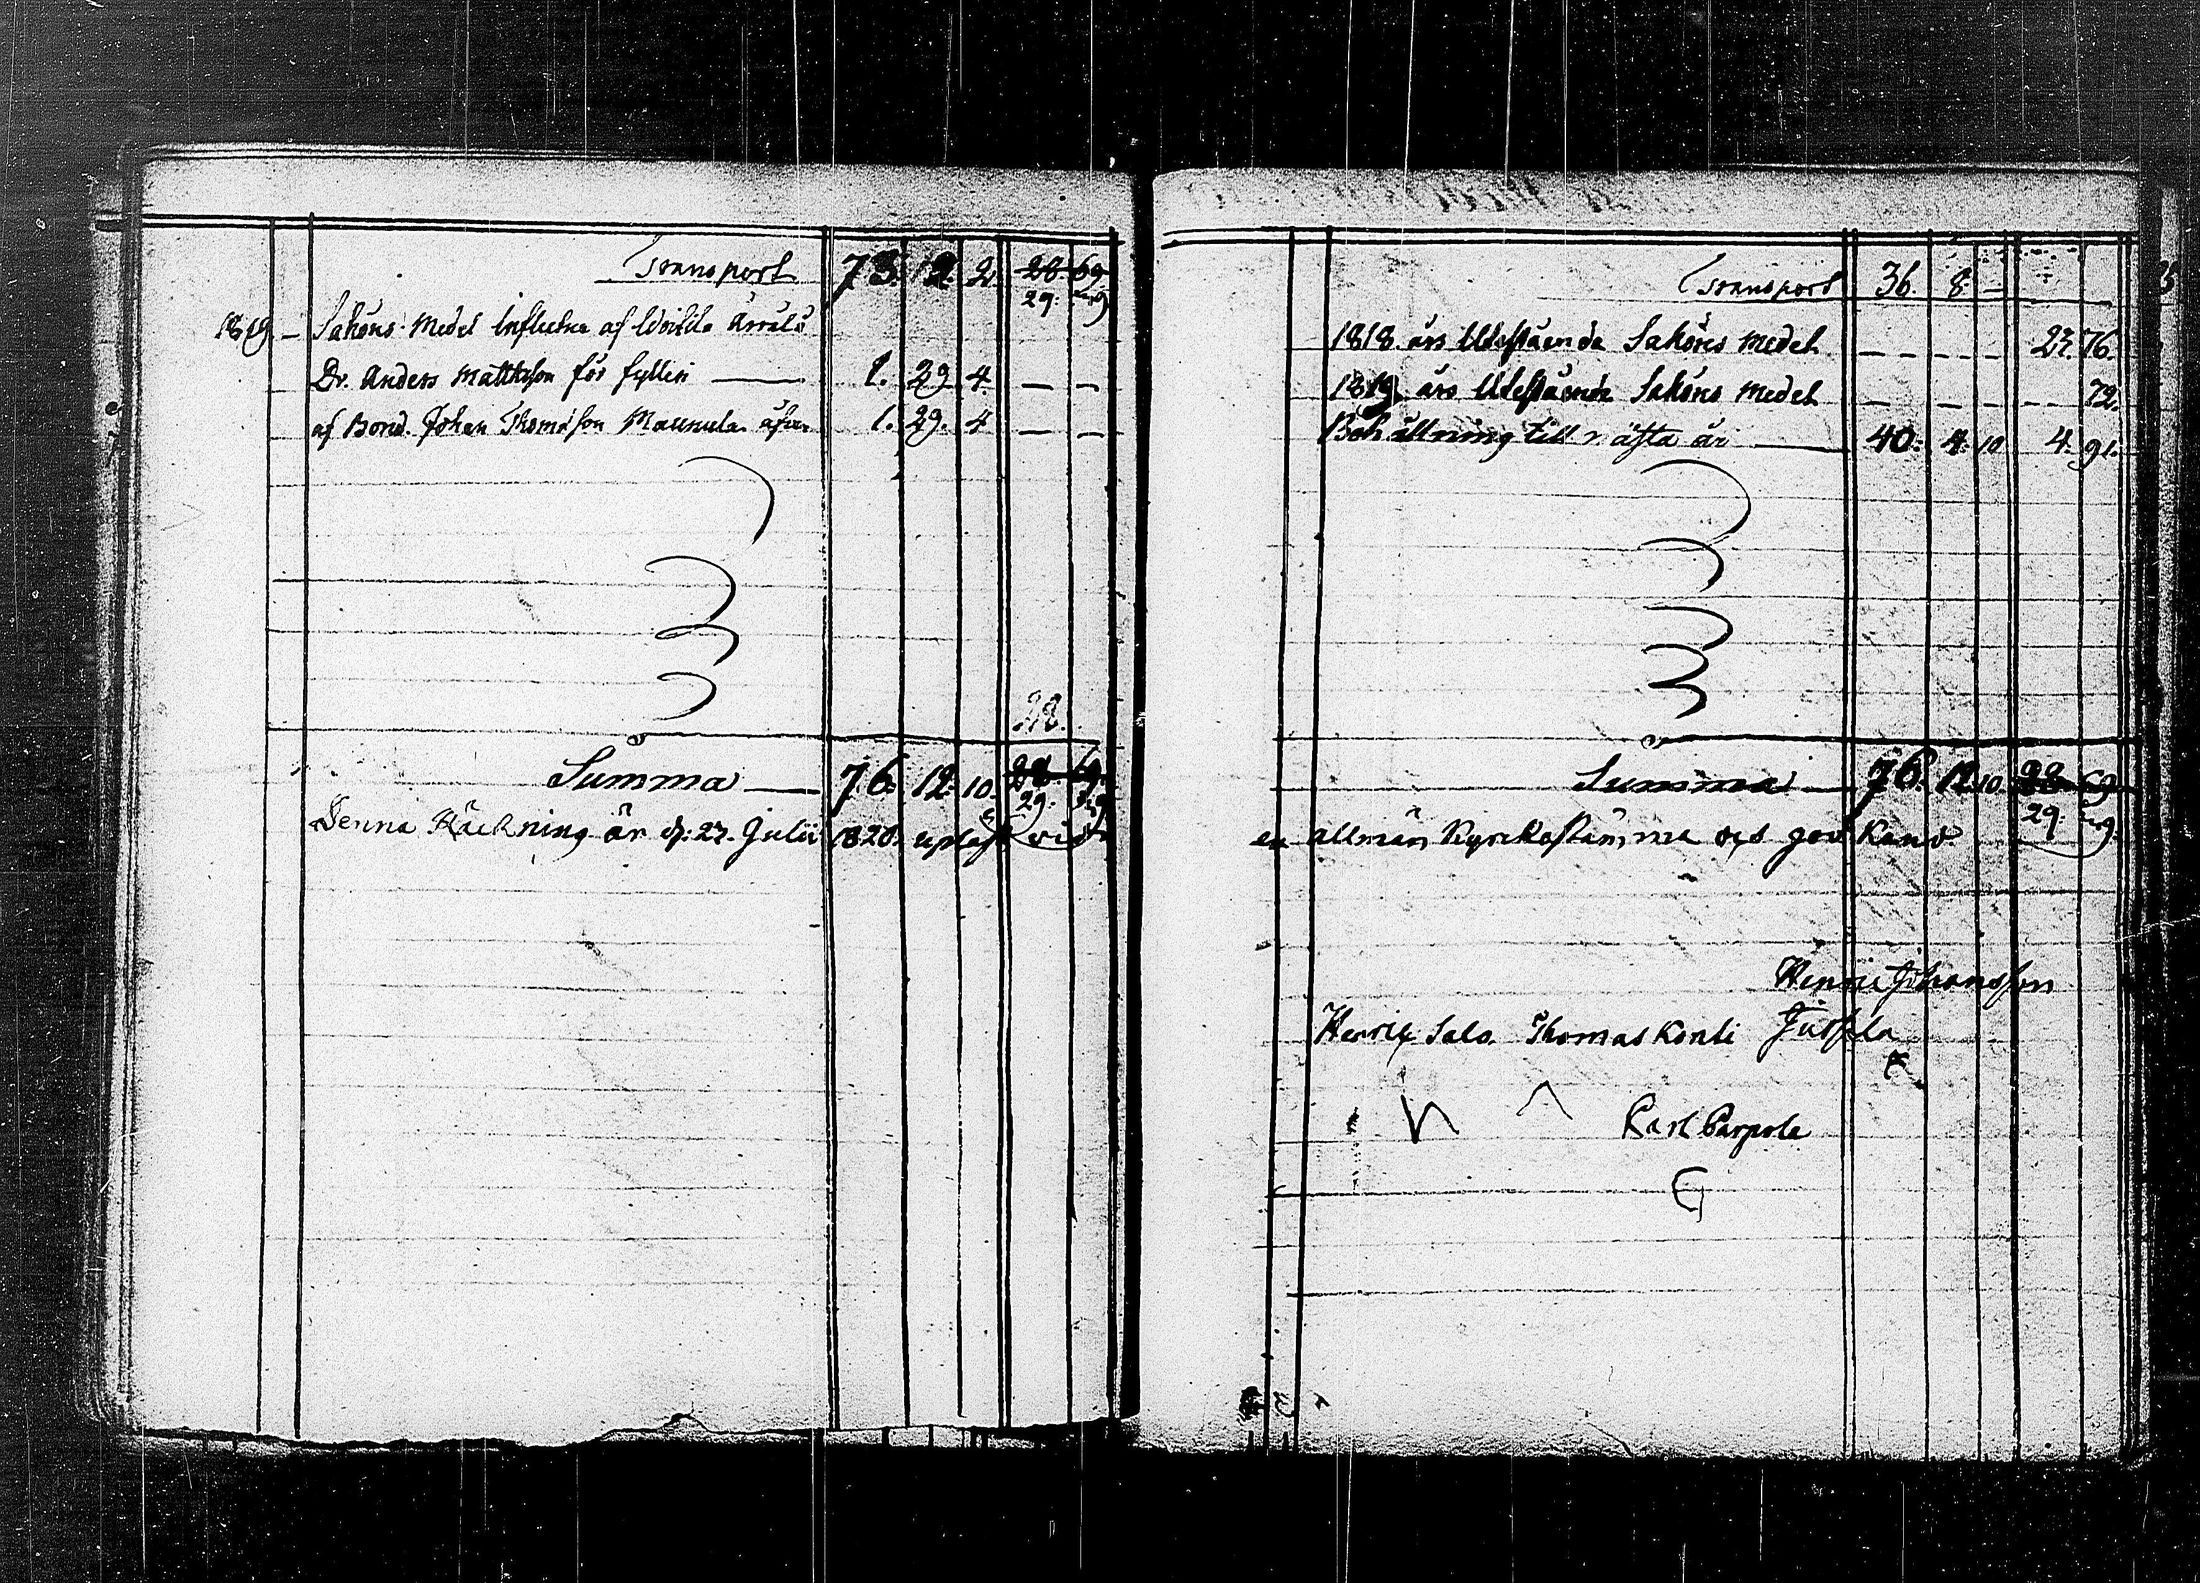 Transport 73. 12. 2. 28 69
29. 49
1819. – Saköns Medel influtne af
Dr. Anders Mattsson för fylleri — 1. 29. 4. – –
af Bond. Johan Thomasson Maunula 1. 29. 4 – –
28.
Summa — 76. 12. 10. 28. 69.
29. 49
Denna Räckning är d: 27. Julii 1820. upläst vid
Transport 36. 8. –
1818. års Utestående Saköres Medel – – – – 23. 76.
1819. års Utestående Saköres Medel – – – – 72.
Behållning till nästa år — 40. 4. 10 4. 91.
Summa — 76. 12. 10. 28 69
29. 49.
en allmän Kyrkostämma och god Känd.
Henric Johansson
Henric Salo. Thomas Konti Jussila
Karl Parpola